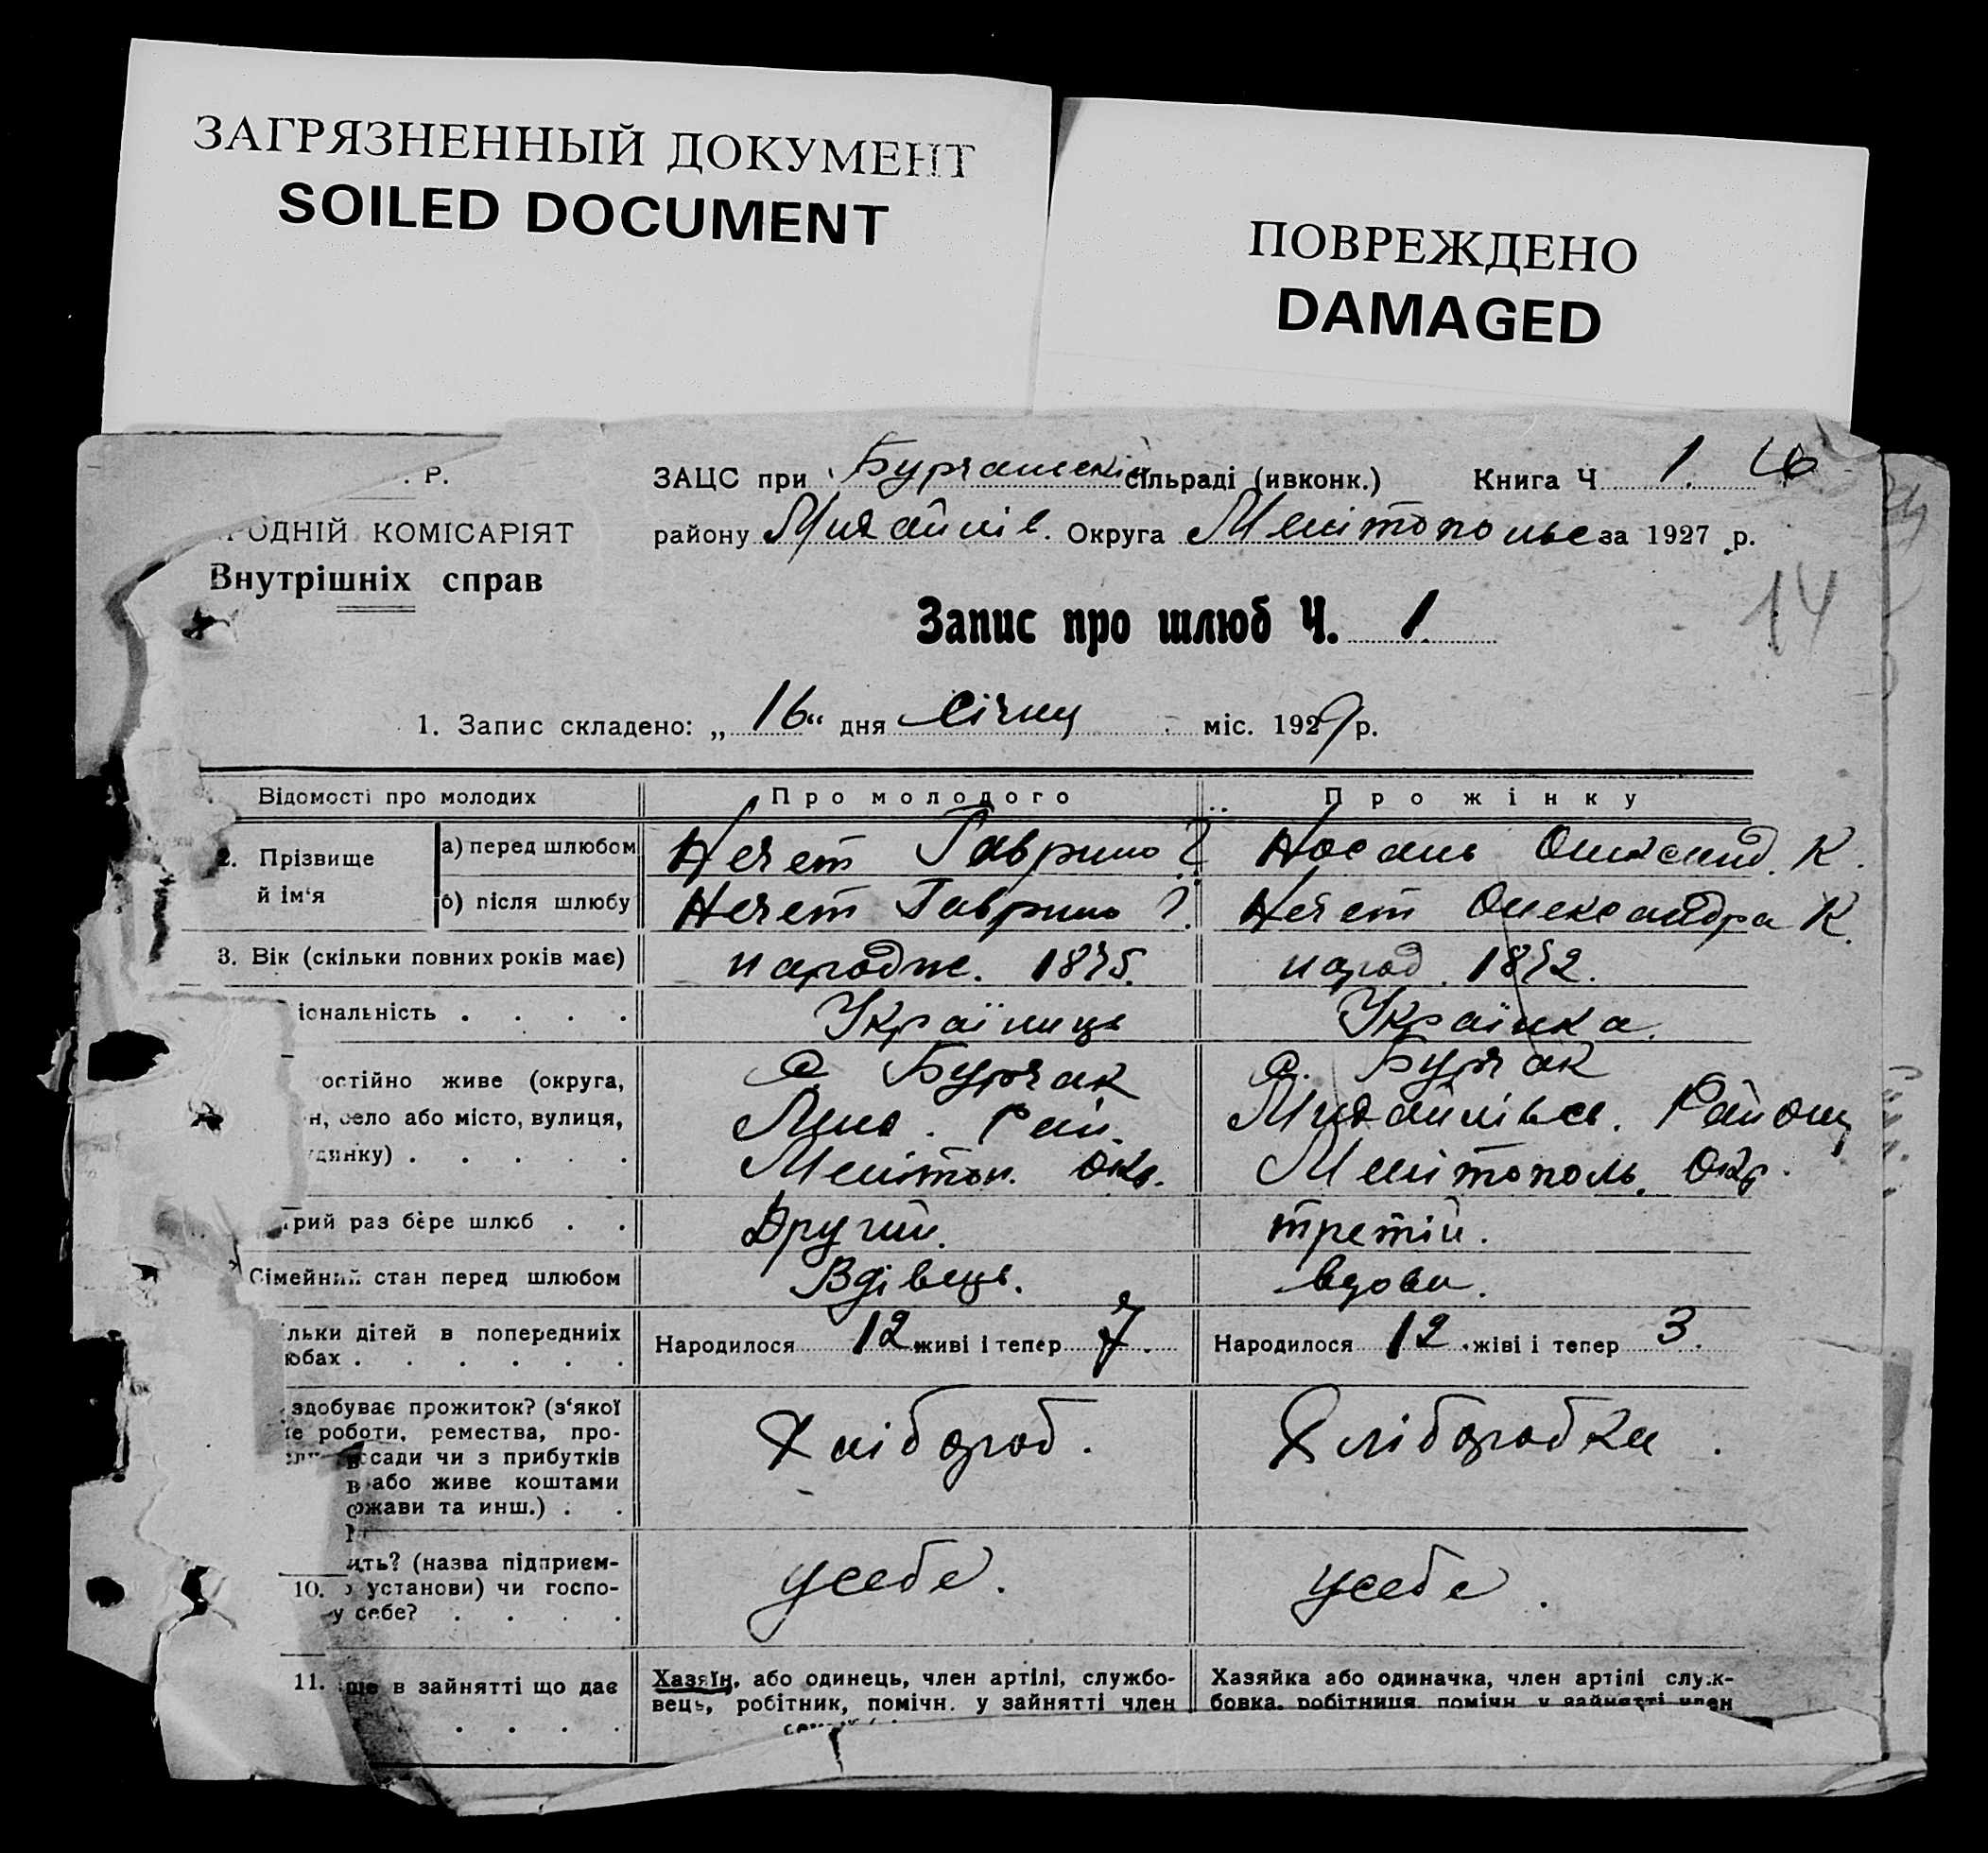 ЗАГРЯЗНЕННЫЙ ДОКУМЕНТ
SOILED DOCUMENT
ПОВРЕЖДЕНО
DAMAGED
. Р.
ОДНІЙ КОМІСАРІЯТ
Внутрішніх справ
ЗАЦС при Бурчатскі сільраді (ивконк.) Книга Ч 1.
району Михайлів. Округа Мелітопольс за 1927 р.
14
Запис про шлюб Ч. 1.
1. Запис складено: „16“ дня Січня міс. 1927 р.
Відомості про молодих Про молодого Про жінку
2. Прізвище й ім‘я
а) перед шлюбом Нечет Гаврило Носань Олександ. К.
б) після шлюбу Нечет Гаврило Нечет Олександра К.
3. Вік (скільки повних років має) народж. 1875. народ. 1872.
іональність . . . . Українець Українка.
остійно живе (округа, с. Бурчак с. Бурчак
н, село або місто, вулиця, Рай. Михайлівсь. Району
динку) . . . . . Меліт. Окр. Мелітополь. Окр.
трий раз бере шлюб . . Другий. третій.
Сімейний стан перед шлюбом Вдівець. вдова.
льки дітей в попередниіх Народилося 12 живі і тепер 7. Народилося 12 живі і тепер 3.
юбах . . . . . .
здобуває прожиток? (з‘якої Хлібороб. Хліборобка.
роботи, ремества, про-
сади чи з прибутків
або живе коштами
ржави та инш.) . .
ить? (назва підприєм- усебе. усебе.
10. установи) чи госпо-
у себе? . . . .
11. ще в зайнятті що дає Хазяїн, або одинець, член артілі, службо- Хазяйка або одиначка, член артілі служ-
вець, робітник, помічн. у зайнятті член бовка, робітниця, помічн. у зайнятті член